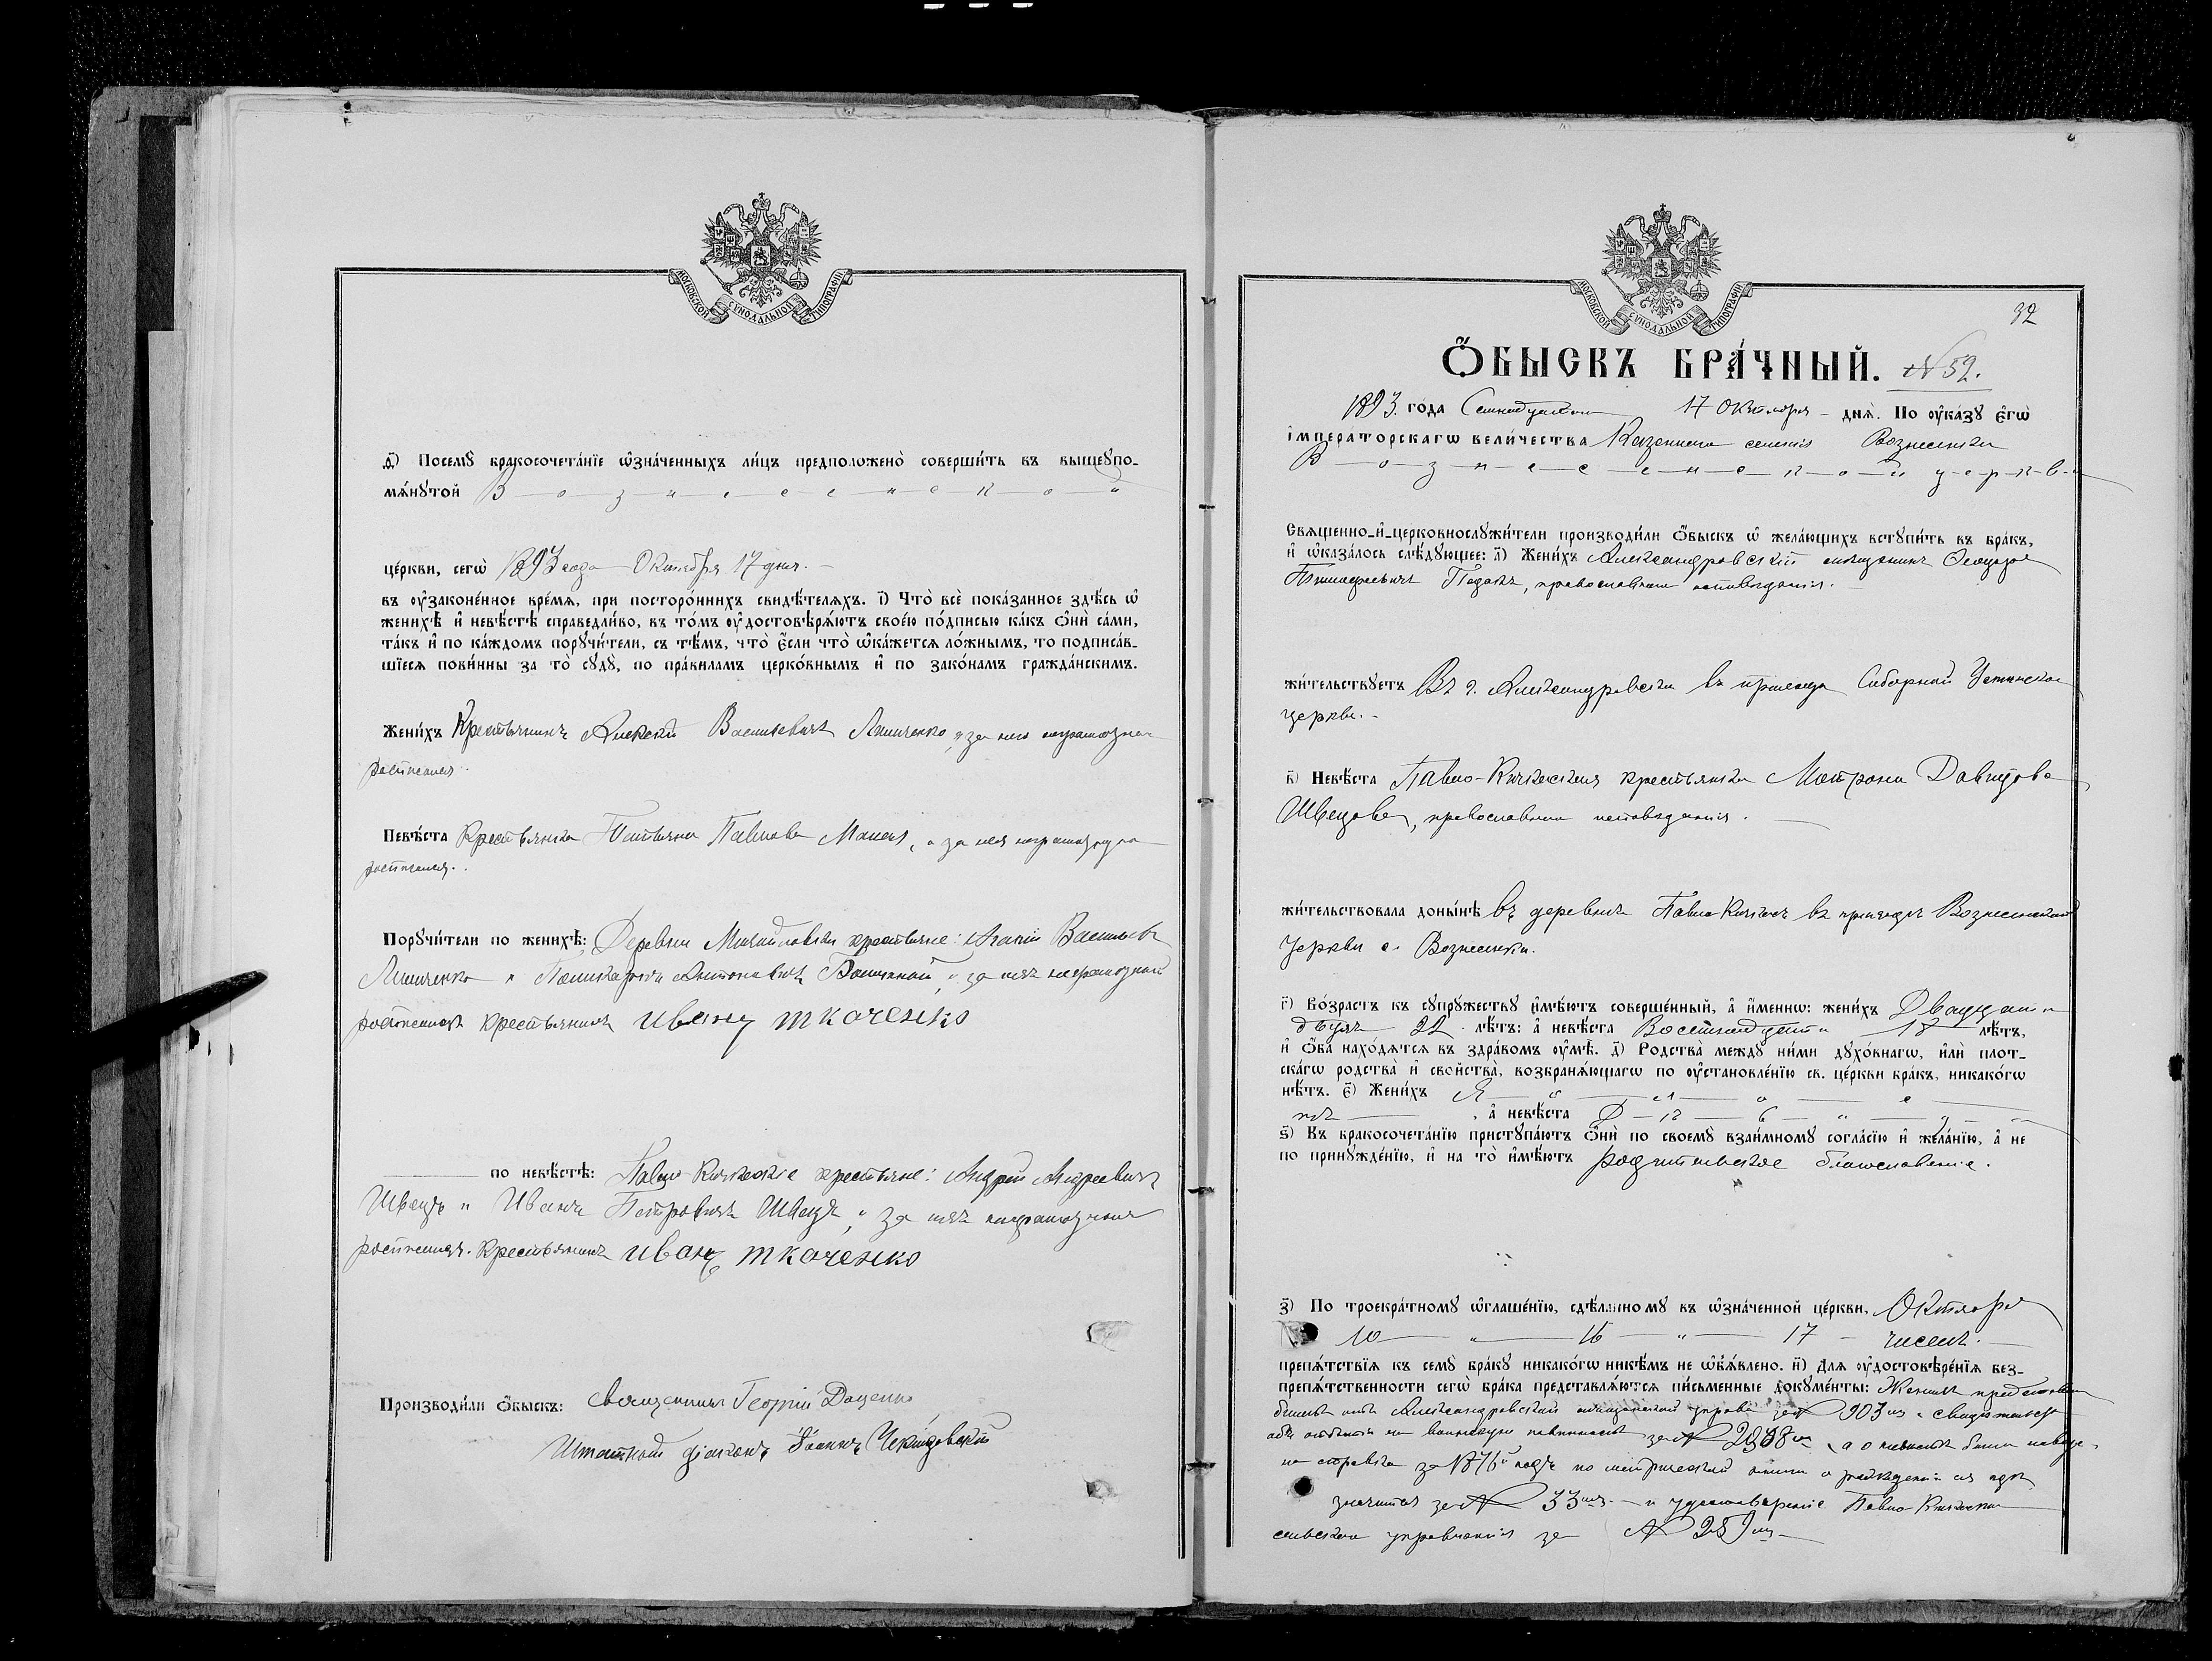 МОСКОВСКОЙ СѴНОДАЛЬНОЙ ТИПОГРАФІИ
ѳ҃) Посемꙋ бракосочета́нїе ѡ҆зна́ченныхъ ли́цъ предположено̀ соверши́ть въ вышеꙋпо-
мѧ́нꙋтой В-о-з-н-е-с-е-н-с-к-о-й
це́ркви, сегѡ̀ 1893 года Октября 17 дня.
въ ᲂу҆зако́ненное вре́мѧ, при посторо́ннихъ свидѣ́телѧхъ. і҃) Что̀ всѐ пока́занное здѣ́сь ѡ҆
женихѣ̀ и҆ невѣ́стѣ справедли́во, въ то́мъ ᲂу҆достовѣрѧ́ютъ свое́ю по́дписью ка́къ ѻ҆нѝ са́ми,
та́къ и҆ по ка́ждомъ порꙋчи́тели, съ тѣ́мъ, что̀ є҆́сли что̀ ѡ҆ка́жетсѧ ло́жнымъ, то подписа́в-
шїесѧ пови́нны за то̀ сꙋдꙋ̀, по пра́виламъ церко́внымъ и҆ по зако́намъ гражда́нскимъ.
Жени́хъ Крестьянинъ Алексѣй Васильевичъ Линченко, а за него неграмотнаго
росписался.
Невѣ́ста Крестьянка Татьяна Павлова, а за нея неграмотную
росписался.
Порꙋчи́тели по женихѣ̀: Деревни Михайловки крестьяне: Агапій Васильевъ
Линченко и Поликарпъ Антоновичъ, а за нихъ неграмотныхъ
росписался крестьянинъ иванъ ткаченко
по невѣ́стѣ: Павло-Кичкаскіе крестьяне: Андрей Андреевичъ
Швецъ и Иванъ Петровичъ Швецъ, а за нихъ неграмотныхъ
росписался крестьянинъ иванъ ткаченко
Производи́ли ѻ҆́быскъ: Священникъ Георгій Доценко
Штатный діаконъ Іоаннъ
МОСКОВСКОЙ СѴНОДАЛЬНОЙ ТИПОГРАФІИ
32
Ѻ҆́БЫСКЪ БРА́ЧНЫЙ. № 52.
1893 го́да Семнадцатаго 17 Октября днѧ̀. По ᲂу҆ка́зꙋ є҆гѡ̀
і҆мпера́торскагѡ вели́чества Казеннаго селенія Вознесенки
В-о-з-н-е-с-е-н-с-к-о-й ц-е-р-к-в-и
Свѧще́нно-и҆-церковнослꙋжи́тели производи́ли ѻ҆́быскъ ѡ҆ жела́ющихъ встꙋпи́ть въ бра́къ,
и҆ ѡ҆каза́лось слѣ́дꙋющее: а҃) Жени́хъ Александровскій мѣщанинъ Ѳеодоръ
православнаго исповѣданія.
жи́тельствꙋетъ Въ г. Александровскѣ въ приходѣ Соборной
церкви.
в҃) Невѣ́ста Павло-Кичкаская крестьянка Матрона Давидова
Швецова, православнаго исповѣданія.
жи́тельствовала доны́нѣ въ деревнѣ Павло-Кичкасъ въ приходѣ Вознесенской
церкви с. Вознесенки.
г҃) Во́зрастъ къ сꙋпрꙋ́жествꙋ и҆мѣ́ютъ соверше́нный, а҆ и҆́меннѡ: жени́хъ Двадцати
двухъ 22 лѣ́тъ: а҆ невѣ́ста Восемнадцати 18 лѣ́тъ,
и҆ ѻ҆́ба нахо́дѧтсѧ въ здра́вомъ ᲂу҆мѣ̀. д҃) Родства̀ междꙋ̀ ни́ми дꙋхо́внагѡ, и҆лѝ плот-
ска́гѡ родства̀ и҆ сво́йства, возбранѧ́ющагѡ по ᲂу҆становле́нїю св. це́ркви бра́къ, никако́гѡ
нѣ́тъ. є҃) Жени́хъ
, а҆ невѣ́ста
ѕ҃) Къ бракосочета́нїю пристꙋпа́ютъ ѻ҆нѝ по своемꙋ̀ взаи́мномꙋ согла́сїю и҆ жела́нїю, а҆ не
по принꙋжде́нїю, и҆ на то̀ и҆мѣ́ютъ родительское благословеніе.
з҃) По троекра́тномꙋ ѡ҆глаше́нїю, сдѣ́ланномꙋ въ ѡ҆зна́ченной це́ркви, Октября
10 " 16 " 17 чиселъ.
препѧ́тствїѧ къ семꙋ̀ бра́кꙋ никако́гѡ никѣ́мъ не ѡ҆б̾ѧ́влено. и҃) Длѧ ᲂу҆достовѣре́нїѧ без-
препѧ́тственности сегѡ̀ бра́ка представлѧ́ютсѧ пи́сьменные докꙋме́нты: Женихъ представилъ
билетъ изъ Александровской мѣщанской управы за № 903 и свидѣтельство
объ отбытіи воинскую повинность за № а о невѣстѣ была наведе-
на справка за 1876й годъ по метрической книги о рожденіи ея гдѣ
значится за № 33 и удостовѣреніе Павло-Кичкаскаго
сельскаго управленія за № 289